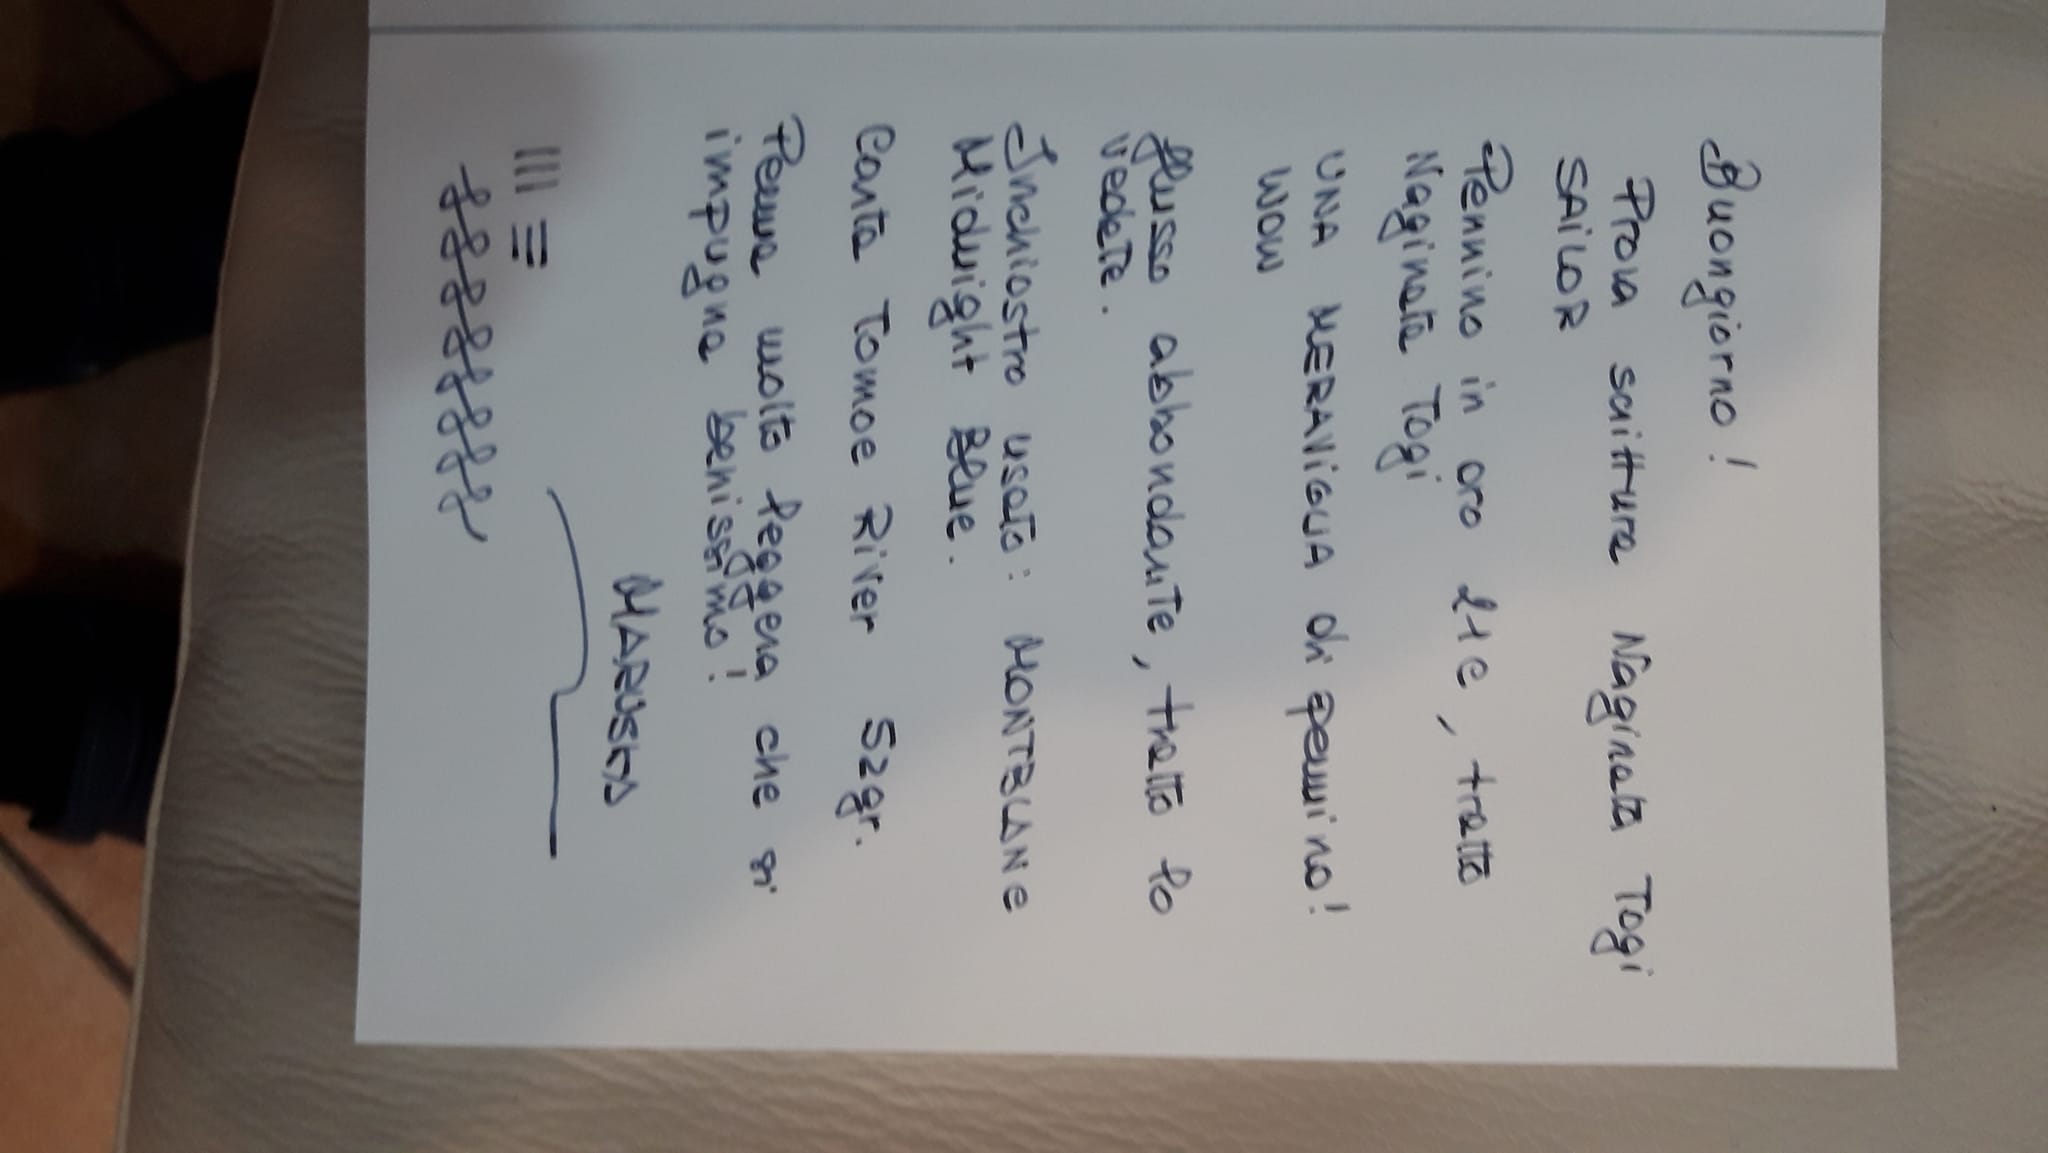 Buongiorno!
Prova scrittura Naginata Togi
SAiLOR
Pennino in oro 21c, tratto
Naginata Togi
UNA MERAViGLiA di pennino!
WOW
flusso abbondante, tratto lo
vedete.
Inchiostro usato: MONTBLANC
Midnight Blue.
Carta Tomoe River 52gr.
Penna molto leggera che si
impugna benissimo!
MARUSKA